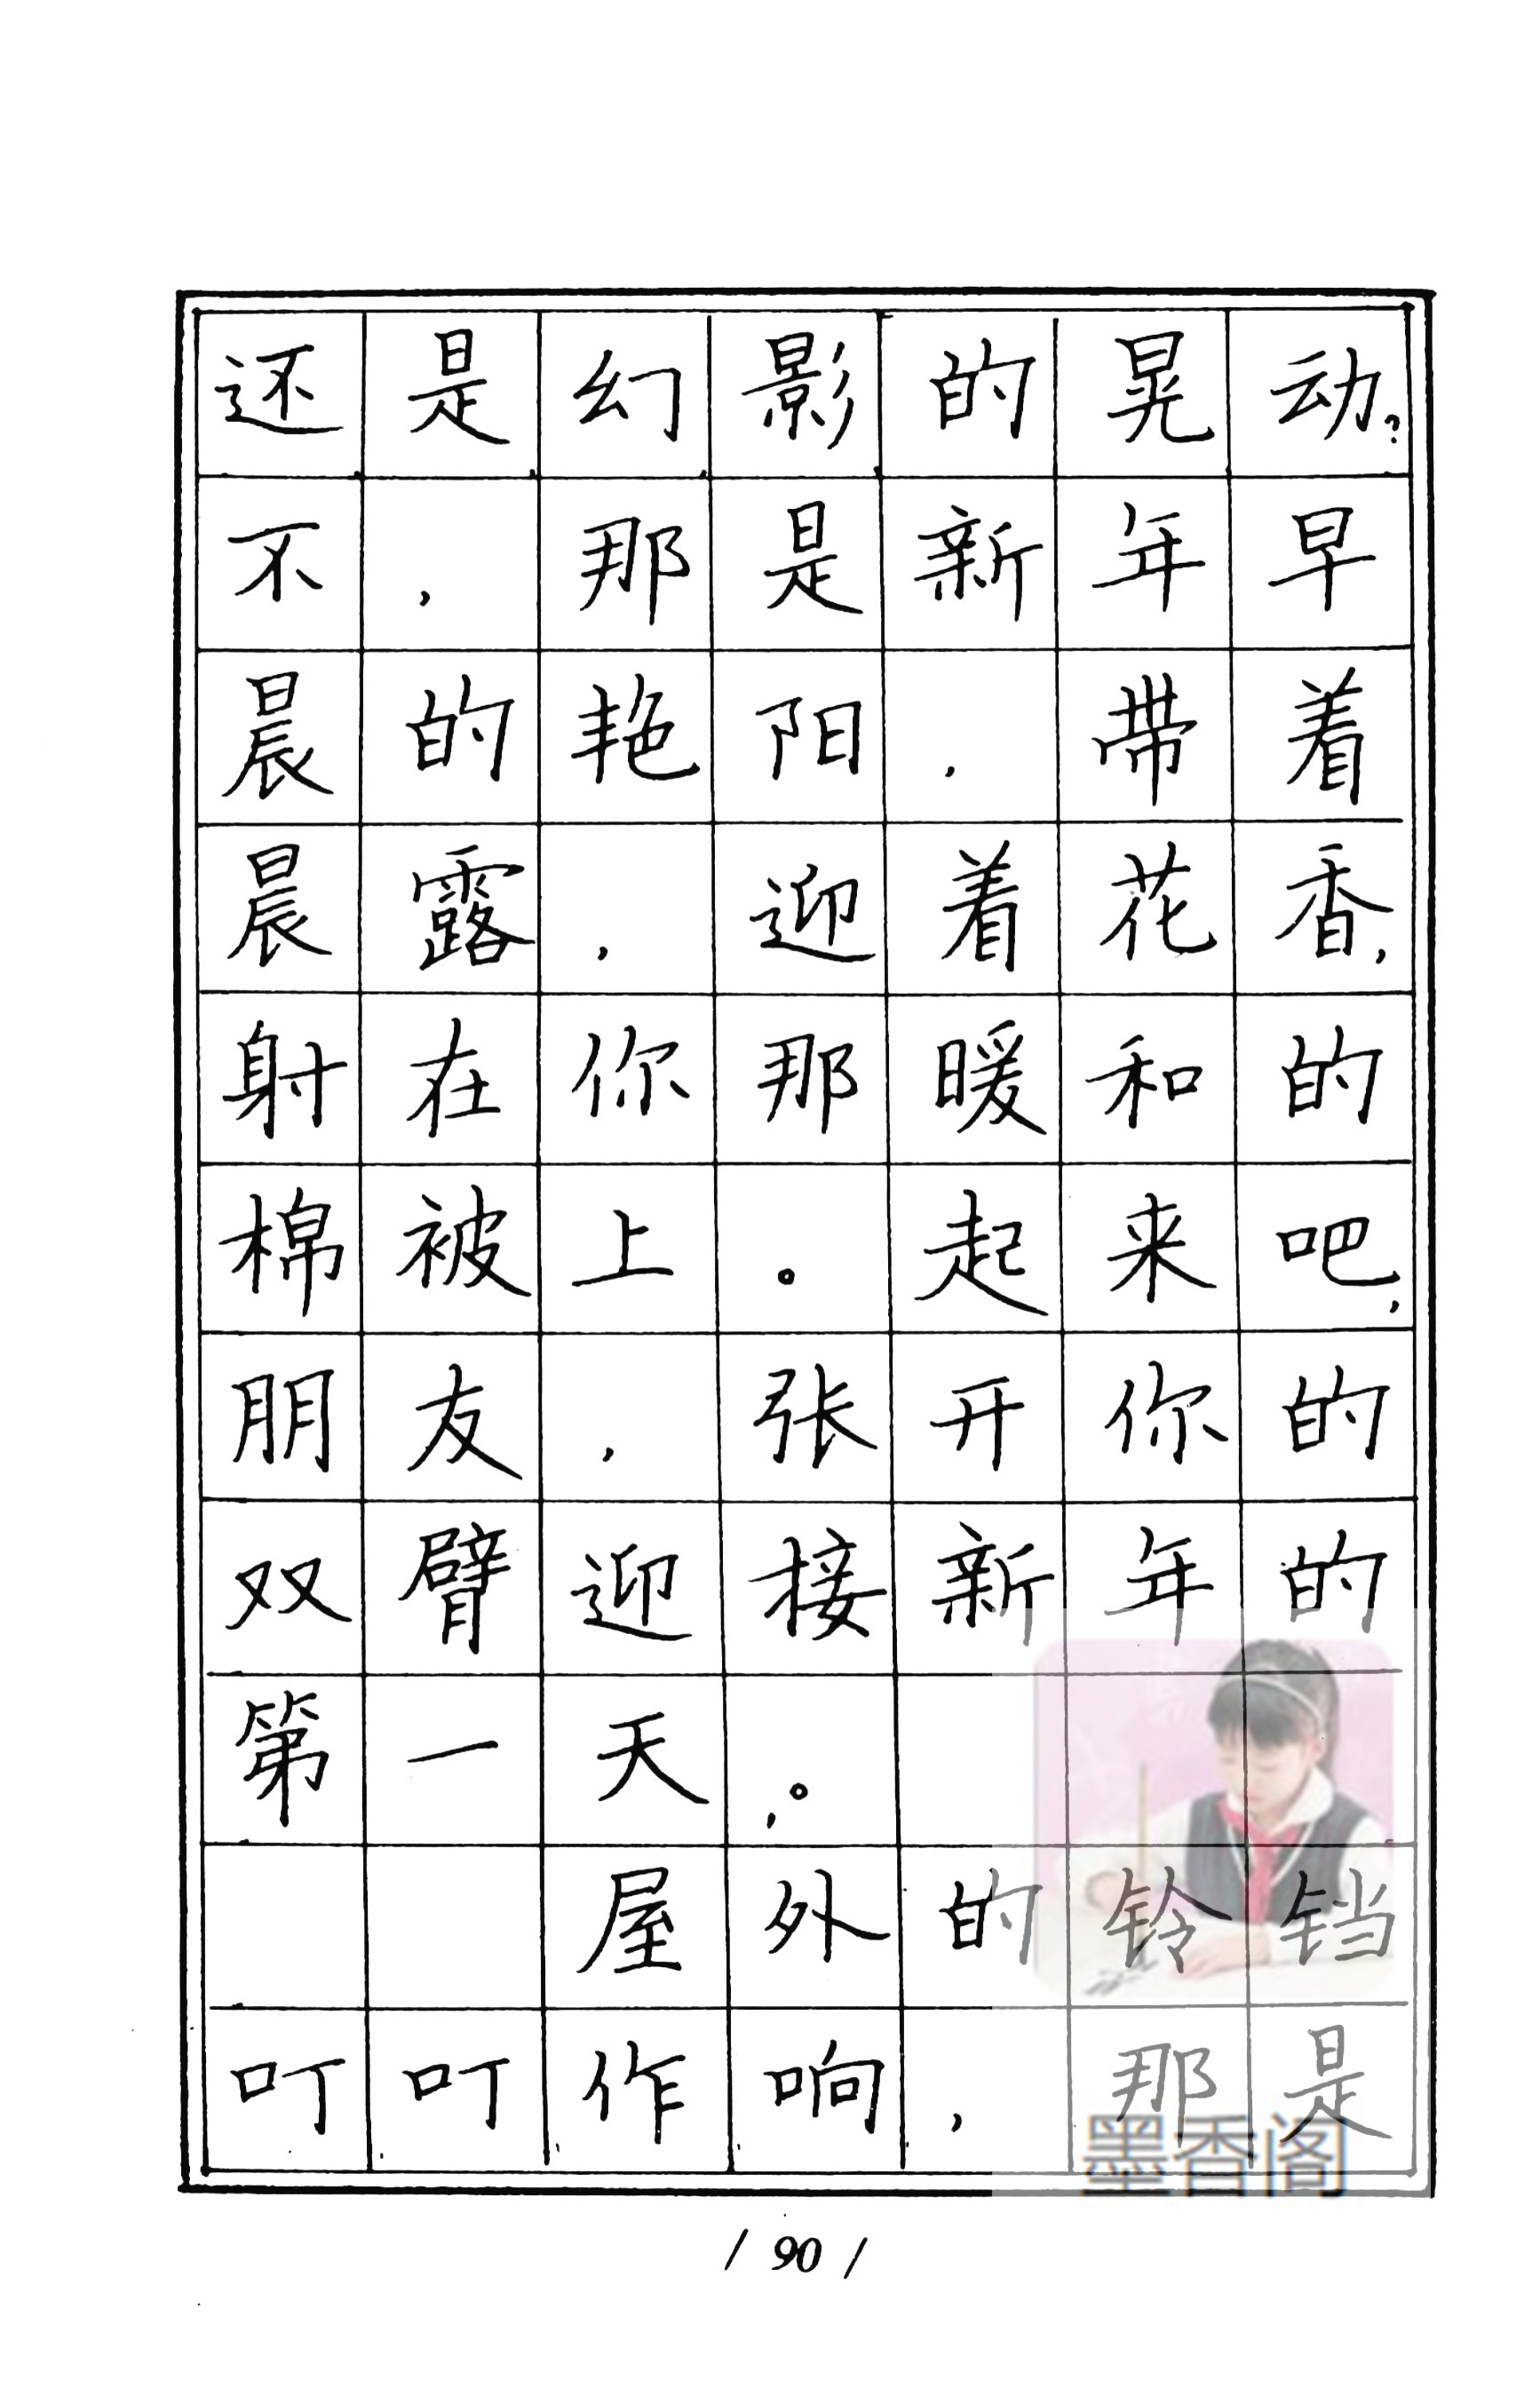 还是幻影的晃动?
不,那是新年早
晨的艳阳,带着
晨露,迎着花香,
射在你那暖和的
棉被上。起来吧,
朋友,张开你的
双臂迎接新年的
第一天,。
屋外的铃铛
叮叮作响,那是
墨香阁
/ 90 /